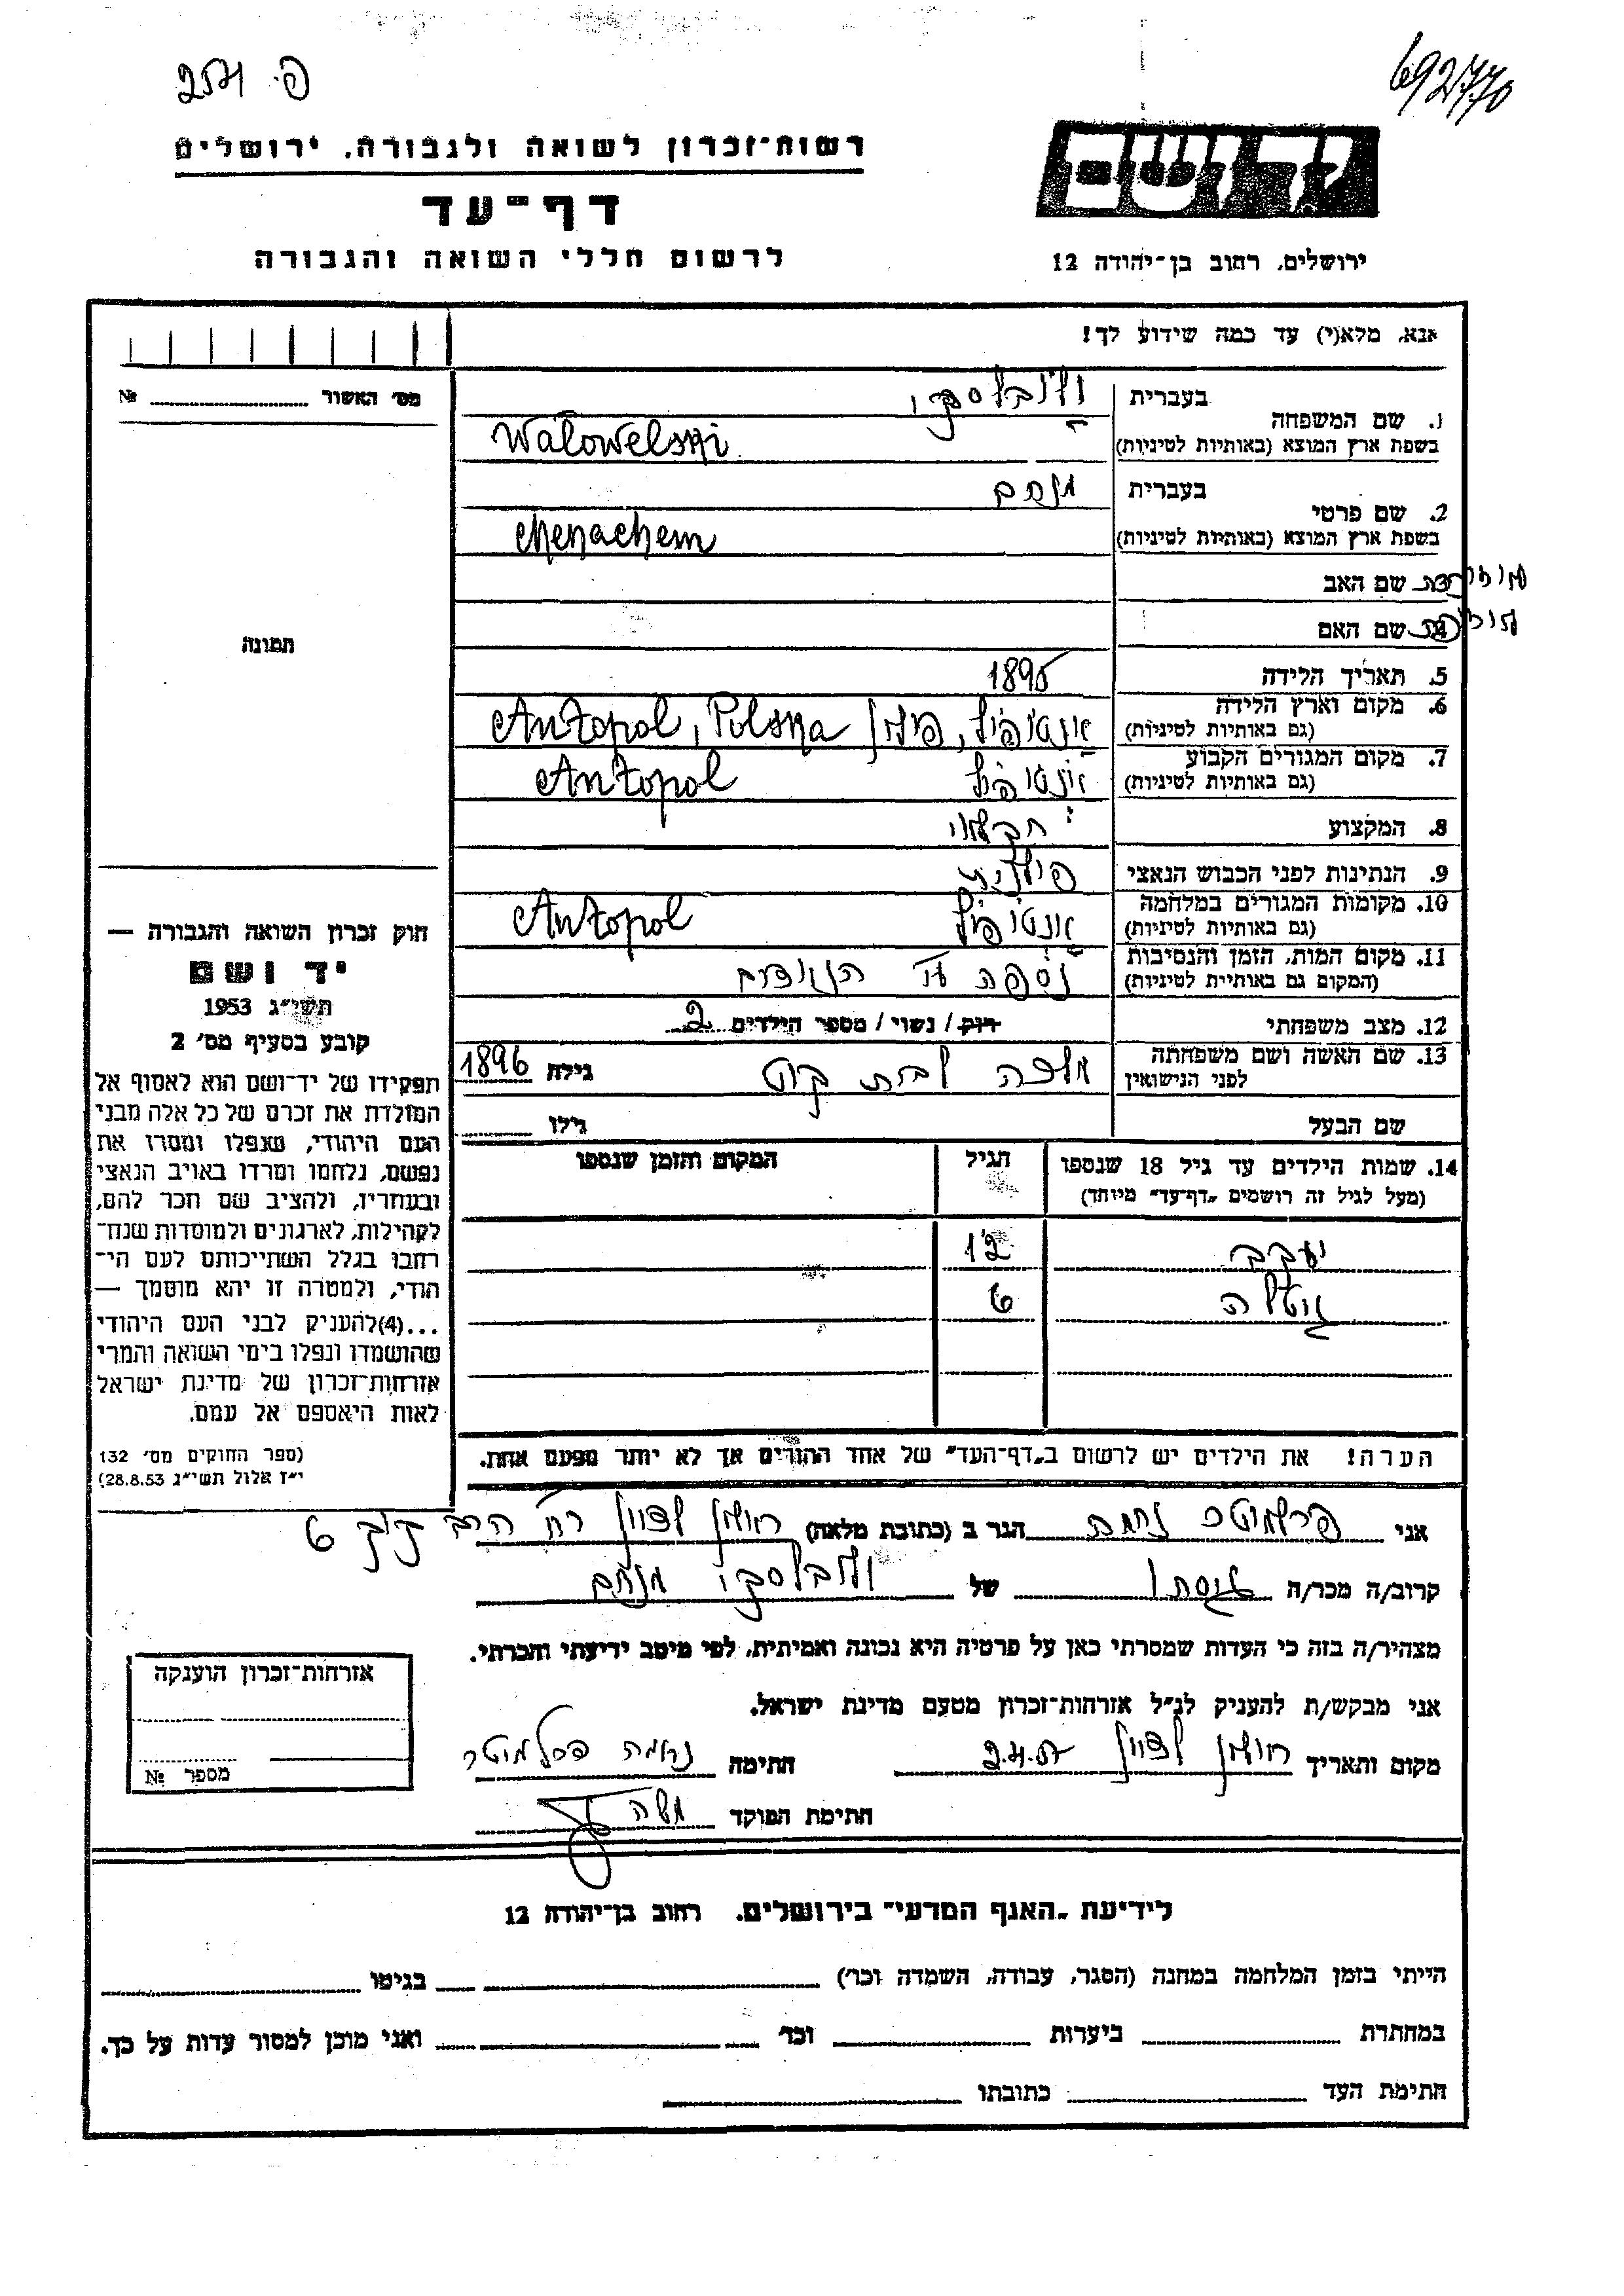 692770
פ. 2571
רשות־זכרון לשואה ולגבורה, ירושלים
דף־עד
לרשום חללי השואה והגבורה
יד ושם
ירושלים, רחוב בן־יהודה 12
אנא, מלא(י) עד כמה שידוע לך!
מס׳ האשור № 
1. שם המשפחה
בעברית
בשפת ארץ המוצא (באותיות לטיניות)
Walowelski
2. שם פרטי
בעברית מנחם
בשפת ארץ המוצא (באותיות לטיניות)
Menachem
3. שם האב
4. שם האם
תמונה
5. תאריך הלידה 1895
6. מקום וארץ הלידה
(גם באותיות לטיניות)
אנטופול, פולין Antopol, Polska
7. מקום המגורים הקבוע
(גם באותיות לטיניות)
אנטופול Antopol
8. המקצוע חקלאי
9. הנתינות לפני הכבוש הנאצי פולנית
10. מקומות המגורים במלחמה
(גם באותיות לטיניות)
אנטופול Antopol
11. מקום המות, הזמן והנסיבות
(המקום גם באותיות לטיניות)
נספה
12. מצב משפחתי רווק / נשוי / מספר הילדים 2
13. שם האשה ושם משפחתה
לפני הנישואין
מלכה לבית גילה 1896
שם הבעל גילו
14. שמות הילדים עד גיל 18 שנספו
(מעל לגיל זה רושמים „דף־עד״ מיוחד)
הגיל
המקום והזמן שנספו
יעקב 12
גיטלה 6
הערה! את הילדים יש לרשום ב„דף־העד״ של אחד ההורים אך לא יותר מפעם אחת.
חוק זכרון השואה והגבורה —
יד ושם
תשי״ג 1953
קובע בסעיף מס׳ 2
תפקידו של יד־ושם הוא לאסוף אל
המולדת את זכרם של כל אלה מבני
העם היהודי, שנפלו ומסרו את
נפשם, נלחמו ומרדו באויב הנאצי
ובעוזריו, ולהציב שם וזכר להם,
לקהילות, לארגונים ולמוסדות שנח־
רבו בגלל השתייכותם לעם הי־
הודי, ולמטרה זו יהא מוסמך —
...(4)להעניק לבני העם היהודי
שהושמדו ונפלו בימי השואה והמרי
אזרחות־זכרון של מדינת ישראל
לאות היאספם אל עמם.
(ספר החוקים מס׳ 132
י״ז אלול תשי״ג 28.8.53)
אני פרלמוטר נחמה הגר ב (כתובת מלאה) ראשון לציון רח׳ הרב קוק 6
קרוב/ה מכר/ה גיסתו של וולובלסקי מנחם
מצהיר/ה בזה כי העדות שמסרתי כאן על פרטיה היא נכונה ואמיתית, לפי מיטב ידיעתי והכרתי.
אני מבקש/ת להעניק לנ״ל אזרחות־זכרון מטעם מדינת ישראל.
מקום ותאריך ראשון לציון 2.4.57 חתימה נחמה פרלמוטר
חתימת הפוקד משה
אזרחות־זכרון הוענקה
מספר №
לידיעת „האגף המדעי״ בירושלים, רחוב בן־יהודה 12
הייתי בזמן המלחמה במחנה (הסגר, עבודה, השמדה וכו׳) בגיטו
במחתרת ביערות וכו׳ ואני מוכן למסור עדות על כך.
חתימת העד כתובתו